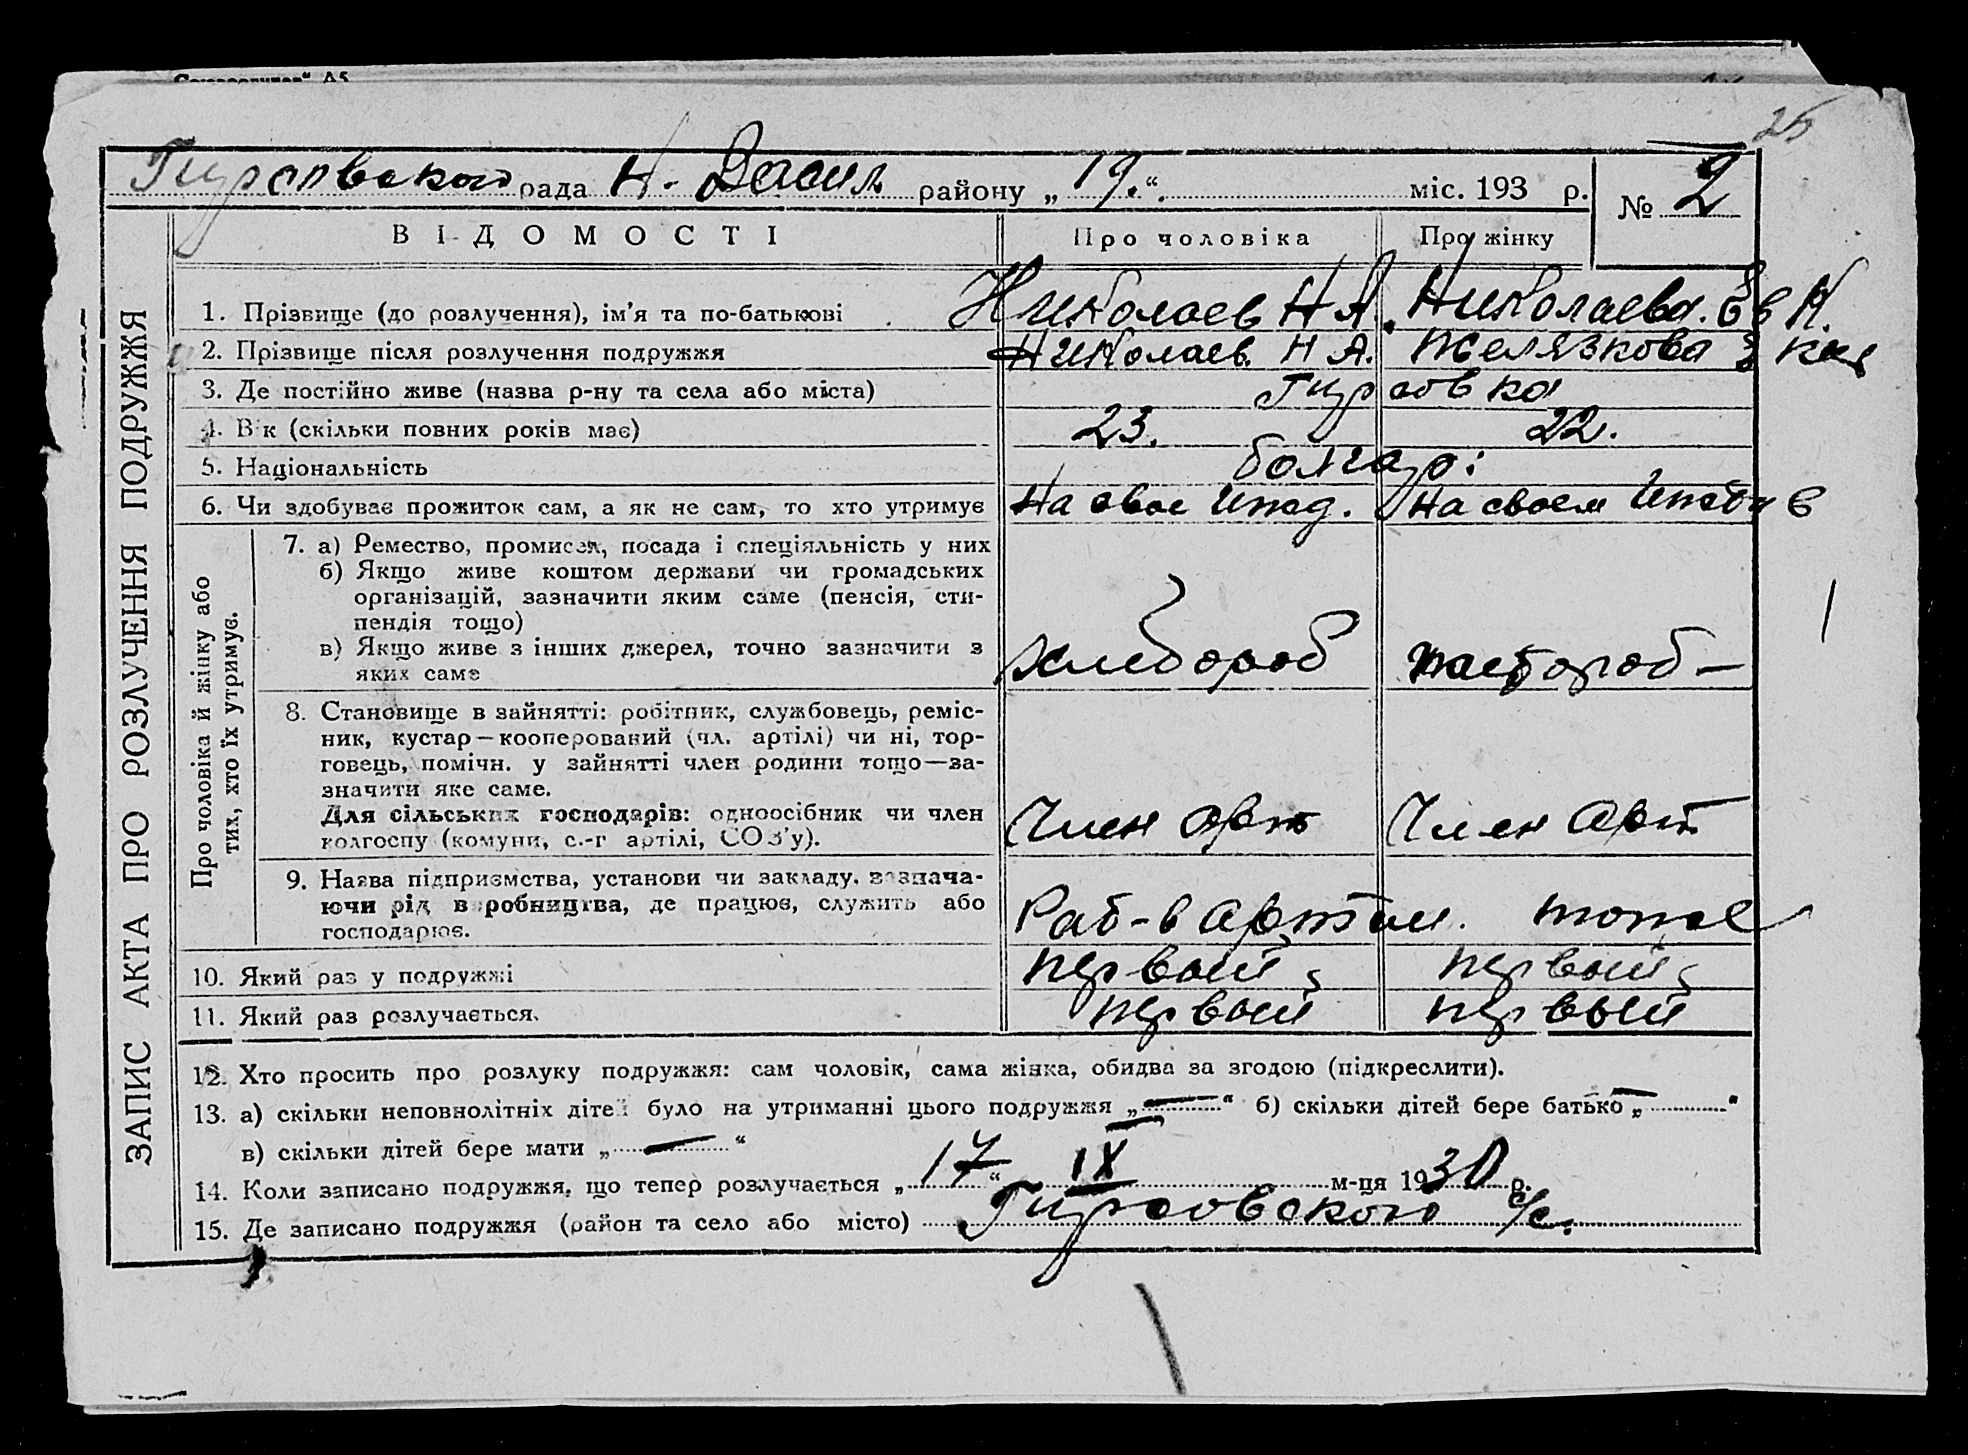 25
Гирсовского рада Н. Васил району „ 19. “ міс. 193 р. № 2
ВІДОМОСТІ Про чоловіка Про жінку
ЗАПИС АКТА ПРО РОЗЛУЧЕННЯ ПОДРУЖЖЯ
1. Прізвище (до розлучення), ім’я та по-батькові Николаев Н А. Николаева. Ев Н.
2. Прізвище після розлучення подружжя Николаев Н А. Желязкова
3. Де постійно живе (назва р-ну та села або міста) Гирсовка
4. Вік (скільки повних років має) 23. 22.
5. Національність болгар:
6. Чи здобуває прожиток сам, а як не сам, то хто утримує На свое Ижд. На своем
Про чоловіка й жінку або
тих, хто їх утримує.
7. а) Ремество, промисел, посада і спеціяльність у них
б) Якщо живе коштом держави чи громадських
організацій, зазначити яким саме (пенсія, сти-
пендія тощо)
в) Якщо живе з інших джерел, точно зазначити з
яких саме хлебороб хлебороб –
8. Становище в зайнятті: робітник, службовець, реміс-
ник, кустар—кооперований (чл. артілі) чи ні, тор-
говець, помічн. у зайнятті член родини тощо—за-
значити яке саме.
Для сільських господарів: одноосібник чи член
колгоспу (комуни, с.-г артілі, СОЗ’у). Член Арт Член Арт
9. Назва підприємства, установи чи закладу, зазнача-
ючи рід виробництва, де працює, служить або
господарює. Раб-в Артели. тоже
10. Який раз у подружжі первый первый
11. Який раз розлучається. первый первый
12. Хто просить про розлуку подружжя: сам чоловік, сама жінка, обидва за згодою (підкреслити).
13. а) скільки неповнолітніх дітей було на утриманні цього подружжя „ — “ б) скільки дітей бере батько „ — “
в) скільки дітей бере мати „ — “
14. Коли записано подружжя, що тепер розлучається „ 17 “ IX м-ця 1930 р.
15. Де записано подружжя (район та село або місто) Гирсовского с/с.